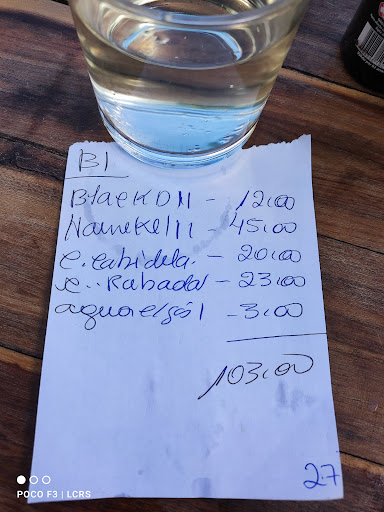 B1
Black D11 - 12,00
- 45,00
c. cabidela. - 20,00
c.. Rabada - 23,00
agua c/gás 1 - 3,00
103,00
27
POCO F3 | LCRS